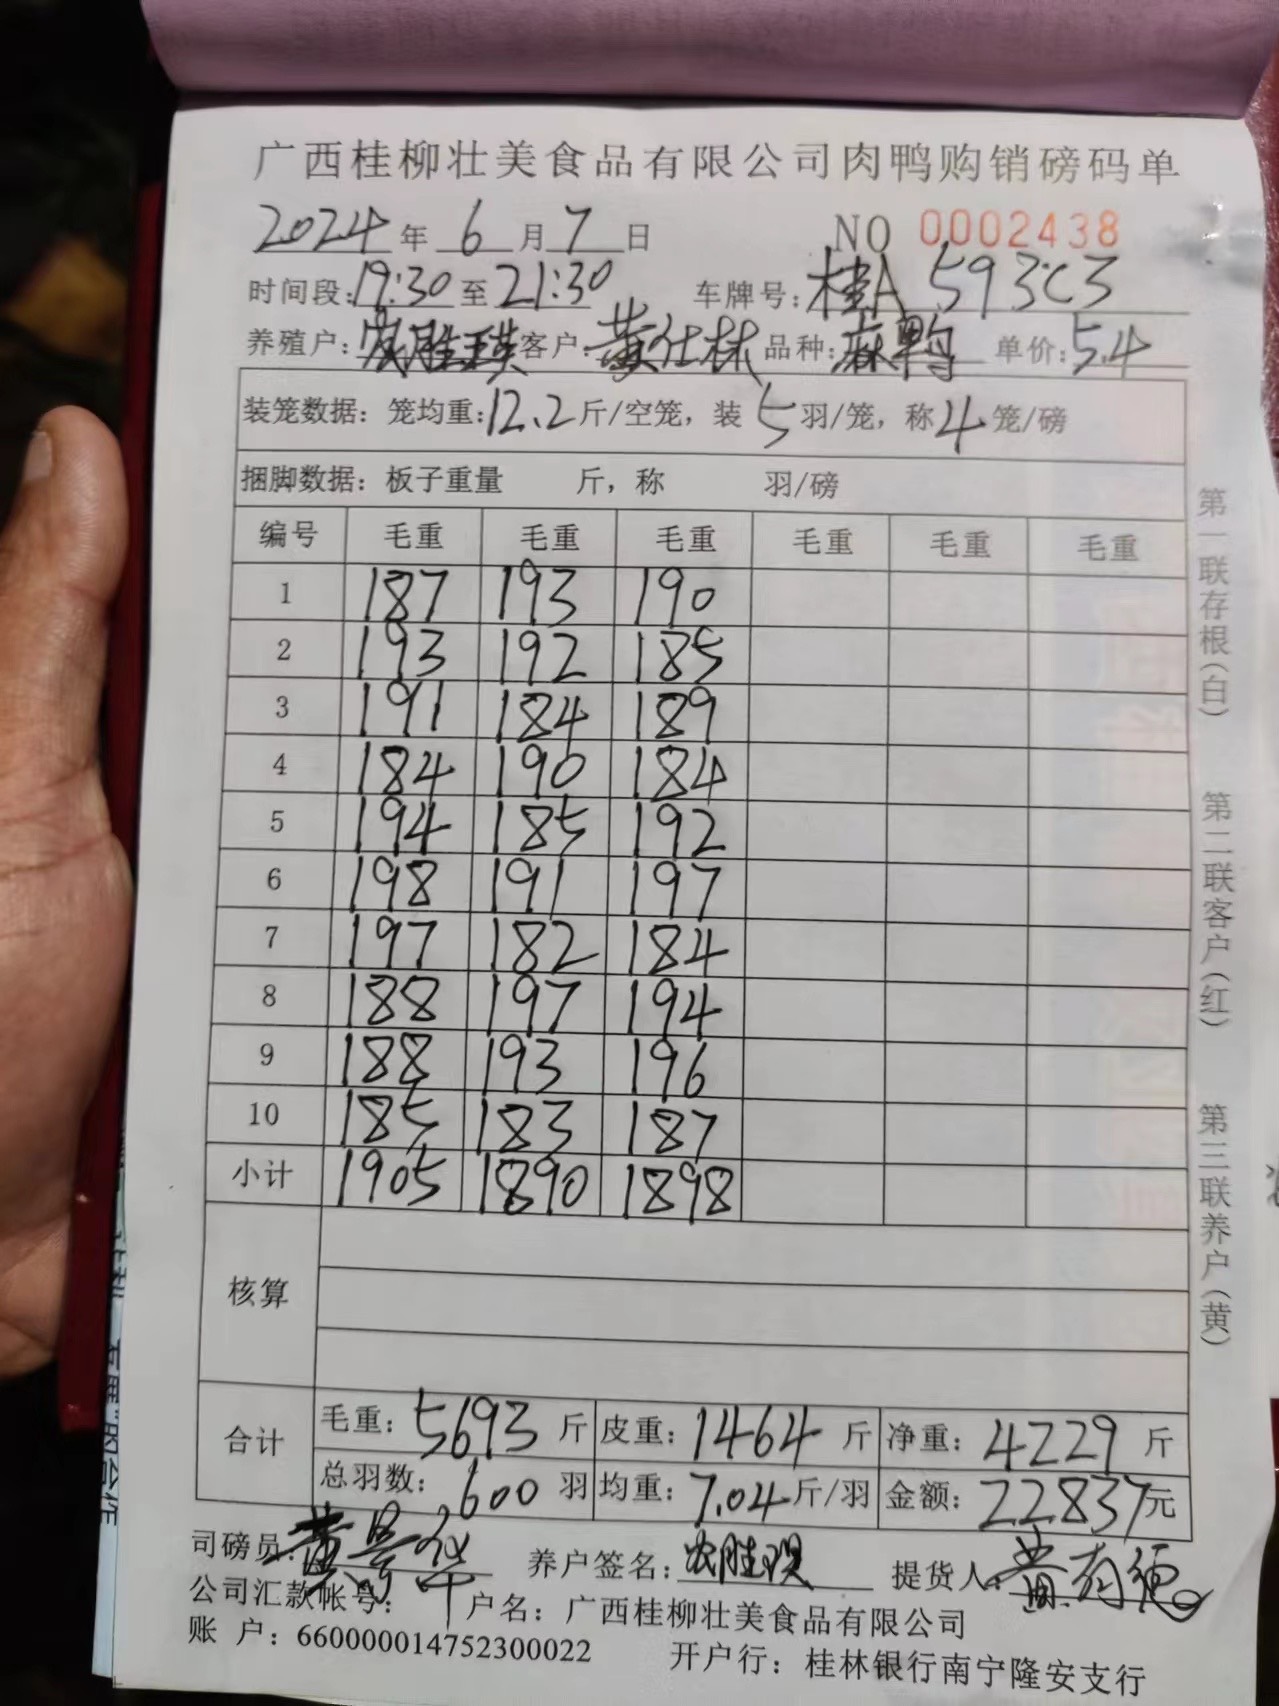 广西桂柳壮美食品有限公司肉鸭购销磅码单
2024年 6 月 7 日 NO 0002438
时间段:19:30至21:30 车牌号:桂A 593C3
养殖户:农胜琪 客户:黄仕林 品种:麻鸭 单价:5.4
装笼数据: 笼均重:12.2斤/空笼, 装 5 羽/笼, 称 4 笼/磅
捆脚数据: 板子重量 斤, 称 羽/磅
编号 毛重 毛重 毛重 毛重 毛重 毛重
1 187 193 190
2 193 192 185
3 191 184 189
4 184 190 184
5 194 185 192
6 198 191 197
7 197 182 184
8 188 197 194
9 188 193 196
10 185 183 187
小计 1905 1890 1898
核算
合计 毛重: 5693 斤 皮重: 1464 斤 净重: 4229 斤
总羽数: 600 羽 均重: 7.04斤/羽 金额: 22837元
司磅员: 黄景华 养户签名: 农胜琪 提货人: 黄有德
公司汇款帐号: 户名: 广西桂柳壮美食品有限公司
账 户: 660000014752300022 开户行: 桂林银行南宁隆安支行
第一联存根(白)
第二联客户(红)
第三联养户(黄)